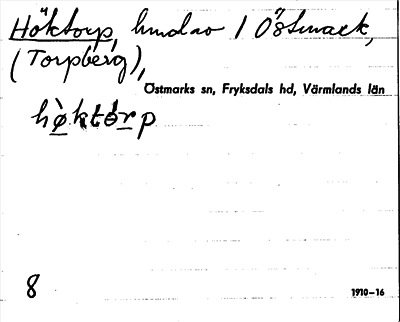 Höktorp, hmdav / Östmark,
(Torpberg),
Östmarks sn, Fryksdals hd, Värmlands län
hø̀któr̲p
8
1910–16